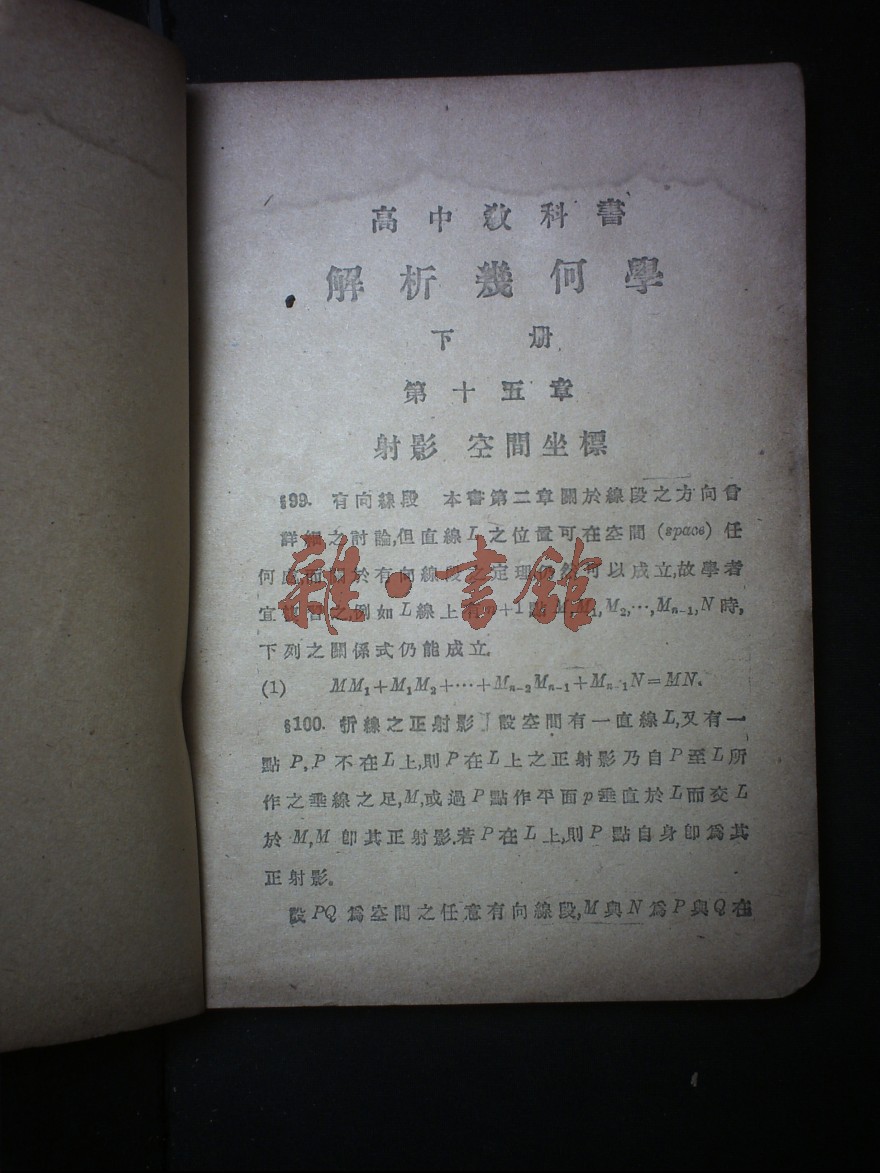 高中教科書
解析幾何學
下册
第十五章
射影 空間坐標
§99. 有向線段 本書第二章關於線段之方向曾
詳細之討論,但直線L之位置可在空間(space)任
何處,而關於有向線段之定理仍然可以成立,故學者
宜復習之,例如L線上有n+1點M,M₁,M₂,…,Mₙ₋₁,N時,
下列之關係式仍能成立.
(1) MM₁+M₁M₂+…+Mₙ₋₂Mₙ₋₁+Mₙ₋₁N=MN.
§100. 折線之正射影 設空間有一直線L,又有一
點P,P不在L上,則P在L上之正射影乃自P至L所
作之垂線之足,M,或過P點作平面p垂直於L而交L
於M,M卽其正射影.若P在L上,則P點自身卽爲其
正射影。
設PQ爲空間之任意有向線段,M與N爲P與Q在
雜·書館